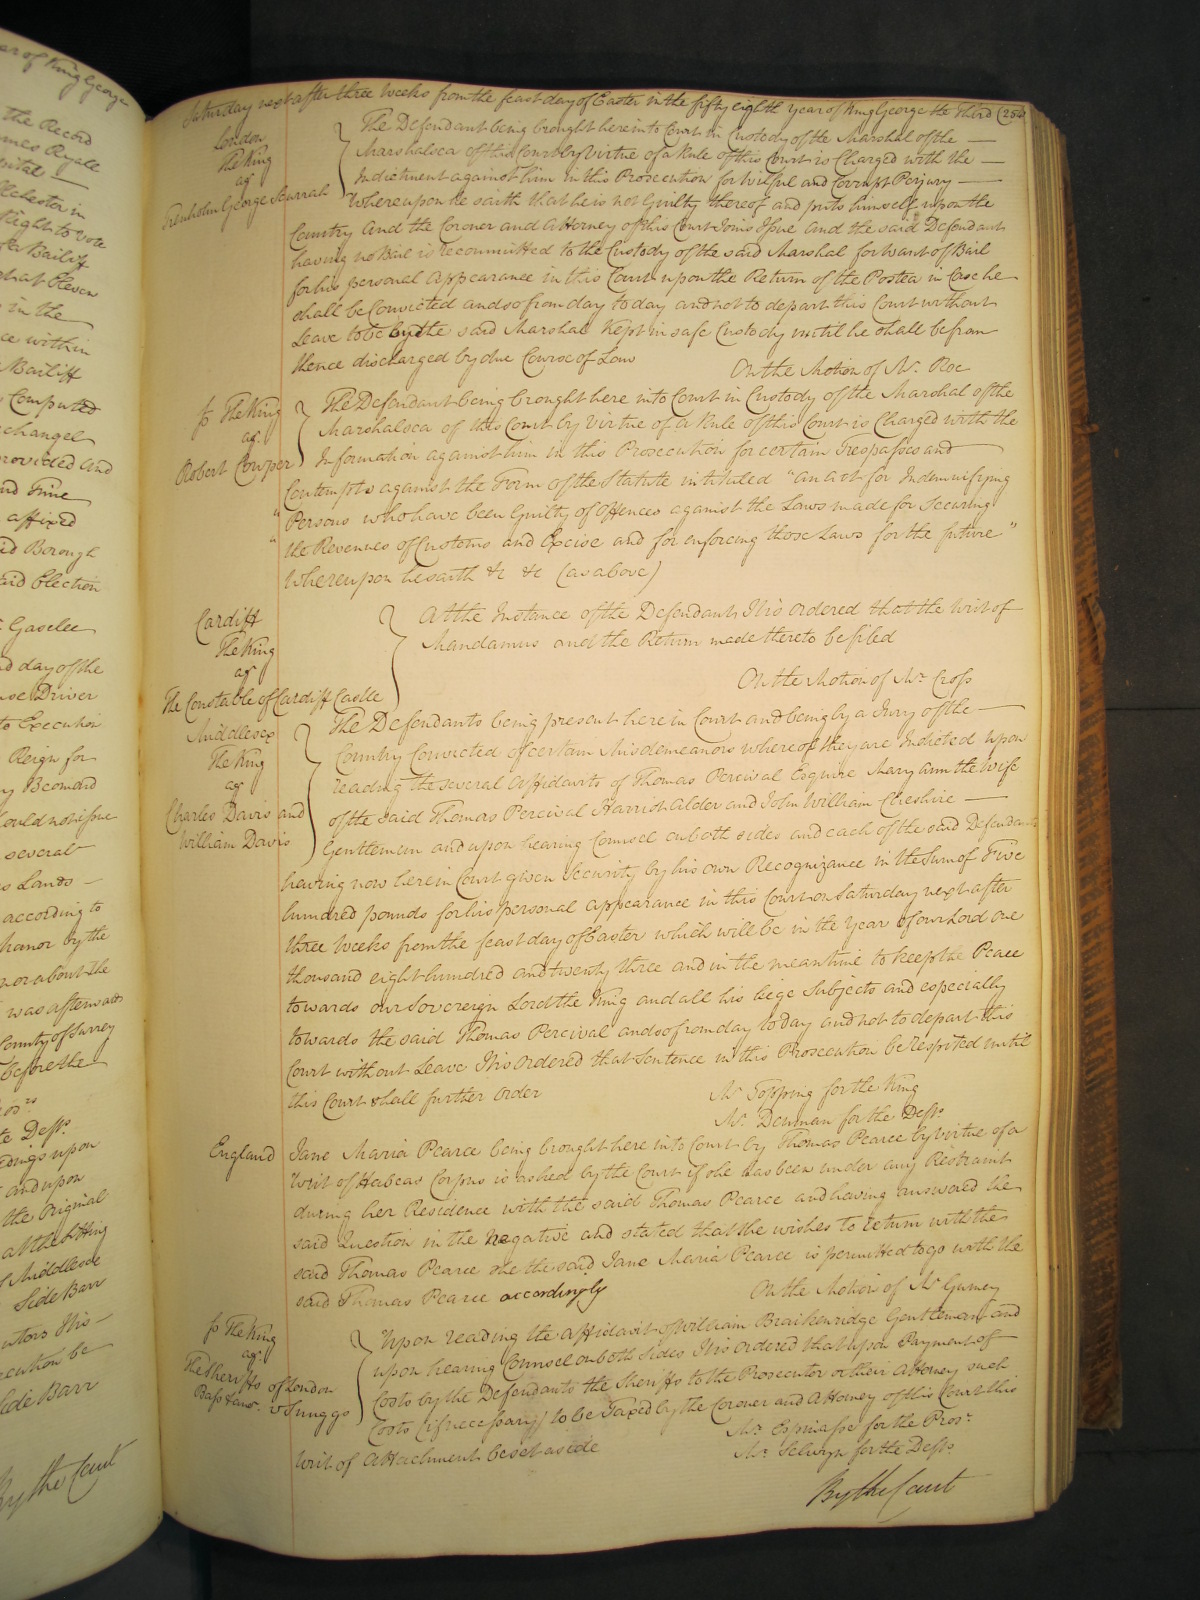 Saturday next after three Weeks from the feast day of Easter in the fifty eighth Year of King George the Third
London
The King
agt
Trenholm George Scurrah
The Defendant being brought here into Court in Custody of the Marshal of the
Marshalsea of this Court by Virtue of a Rule of this Court is Charged with the
Indictment against him in this Prosecution for wilful and corrupt Perjury
Whereupon he saith that he is not Guilty thereof and puts himself upon the
Country And the Coroner and Attorney of this Court Joins Issue and the said Defendant
having no Bail is recommitted to the Custody of the said Marshal for want of Bail
for his personal Appearance in this Court upon the Return of the Postea in Case he
shall be Convicted and so from day to day and not to depart this Court without
Leave to be by the said Marshal Kept in safe Custody until he shall be from
thence discharged by due Course of Law
On the Motion of Mr. Roe
The King
agt.
Robert Cowper
The Defendant being brought here into Court in Custody of the Marshal of the
Marshalsea of this Court by Virtue of a Rule of this Court is Charged with the
Information against him in this Prosecution for certain Trespasses and
Contempts against the Form of the Statute intituled "an act for Indemnifying
" Persons who have been Guilty of Offences against the Laws made for Securing
" the Revenues of Customs and Excise and for enforcing those Laws for the future"
Whereupon he saith &c &c (as above)
Cardiff
The King
agt
The Constable of Cardiff Castle
At the Instance of the Defendant It is Ordered that the Writ of
Mandamus and the Return made thereto be filed
On the Motion of Mr. Cross
Middlesex
The King
agt
Charles Davis and
William Davis
The Defendants being present here in Court and being by a Jury of the
Country Convicted of certain Misdemeanors whereof they are Indicted upon
reading the several Affidavits of Thomas Percival Esquire Mary Ann the Wife
of the said Thomas Percival Harriot Alder and John William Cheshire
Gentlemen and upon hearing Counsel on both sides and each of the said Defendants
having now here in Court given Security by his own Recognizance in the Sum of Five
hundred pounds for his personal appearance in this Court on Saturday next after
three Weeks from the feast day of Easter which will be in the Year of our Lord One
thousand eight hundred and twenty three and in the meantime to keep the Peace
towards our Sovereign Lord the King and all his liege Subjects and especially
towards the said Thomas Percival and so from day to day and not to depart this
Court without Leave It is Ordered that Sentence in this Prosecution be Respited until
this Court shall further Order
Mr. Topping for the King
Mr. Denman for the Defts.
England
Jane Maria Pearce being brought here into Court by Thomas Pearce by virtue of a
Writ of Habeas Corpus is asked by the Court if she has been under any Restraint
during her Residence with the said Thomas Pearce and having answered the
said Question in the Negative and stated that she wishes to return with the
said Thomas Pearce she the said Jane Maria Pearce is permitted to go with the
said Thomas Pearce accordingly
On the Motion of Mr Gurney
The King
agt.
The Sheriffs of London
v Snuggs
Upon reading the Affidavit of William Braikenridge Gentleman and
upon hearing Counsel on both sides It is Ordered that upon Payment of
Costs by the Defendants the Sheriffs to the Prosecutor or their Attorney such
Costs (if necessary) to be Taxed by the Coroner and Attorney of this Court this
Writ of Attachment be set aside
Mr. Espinasse for the Pros.
Mr. Selwyn for the Defts.
By the Court